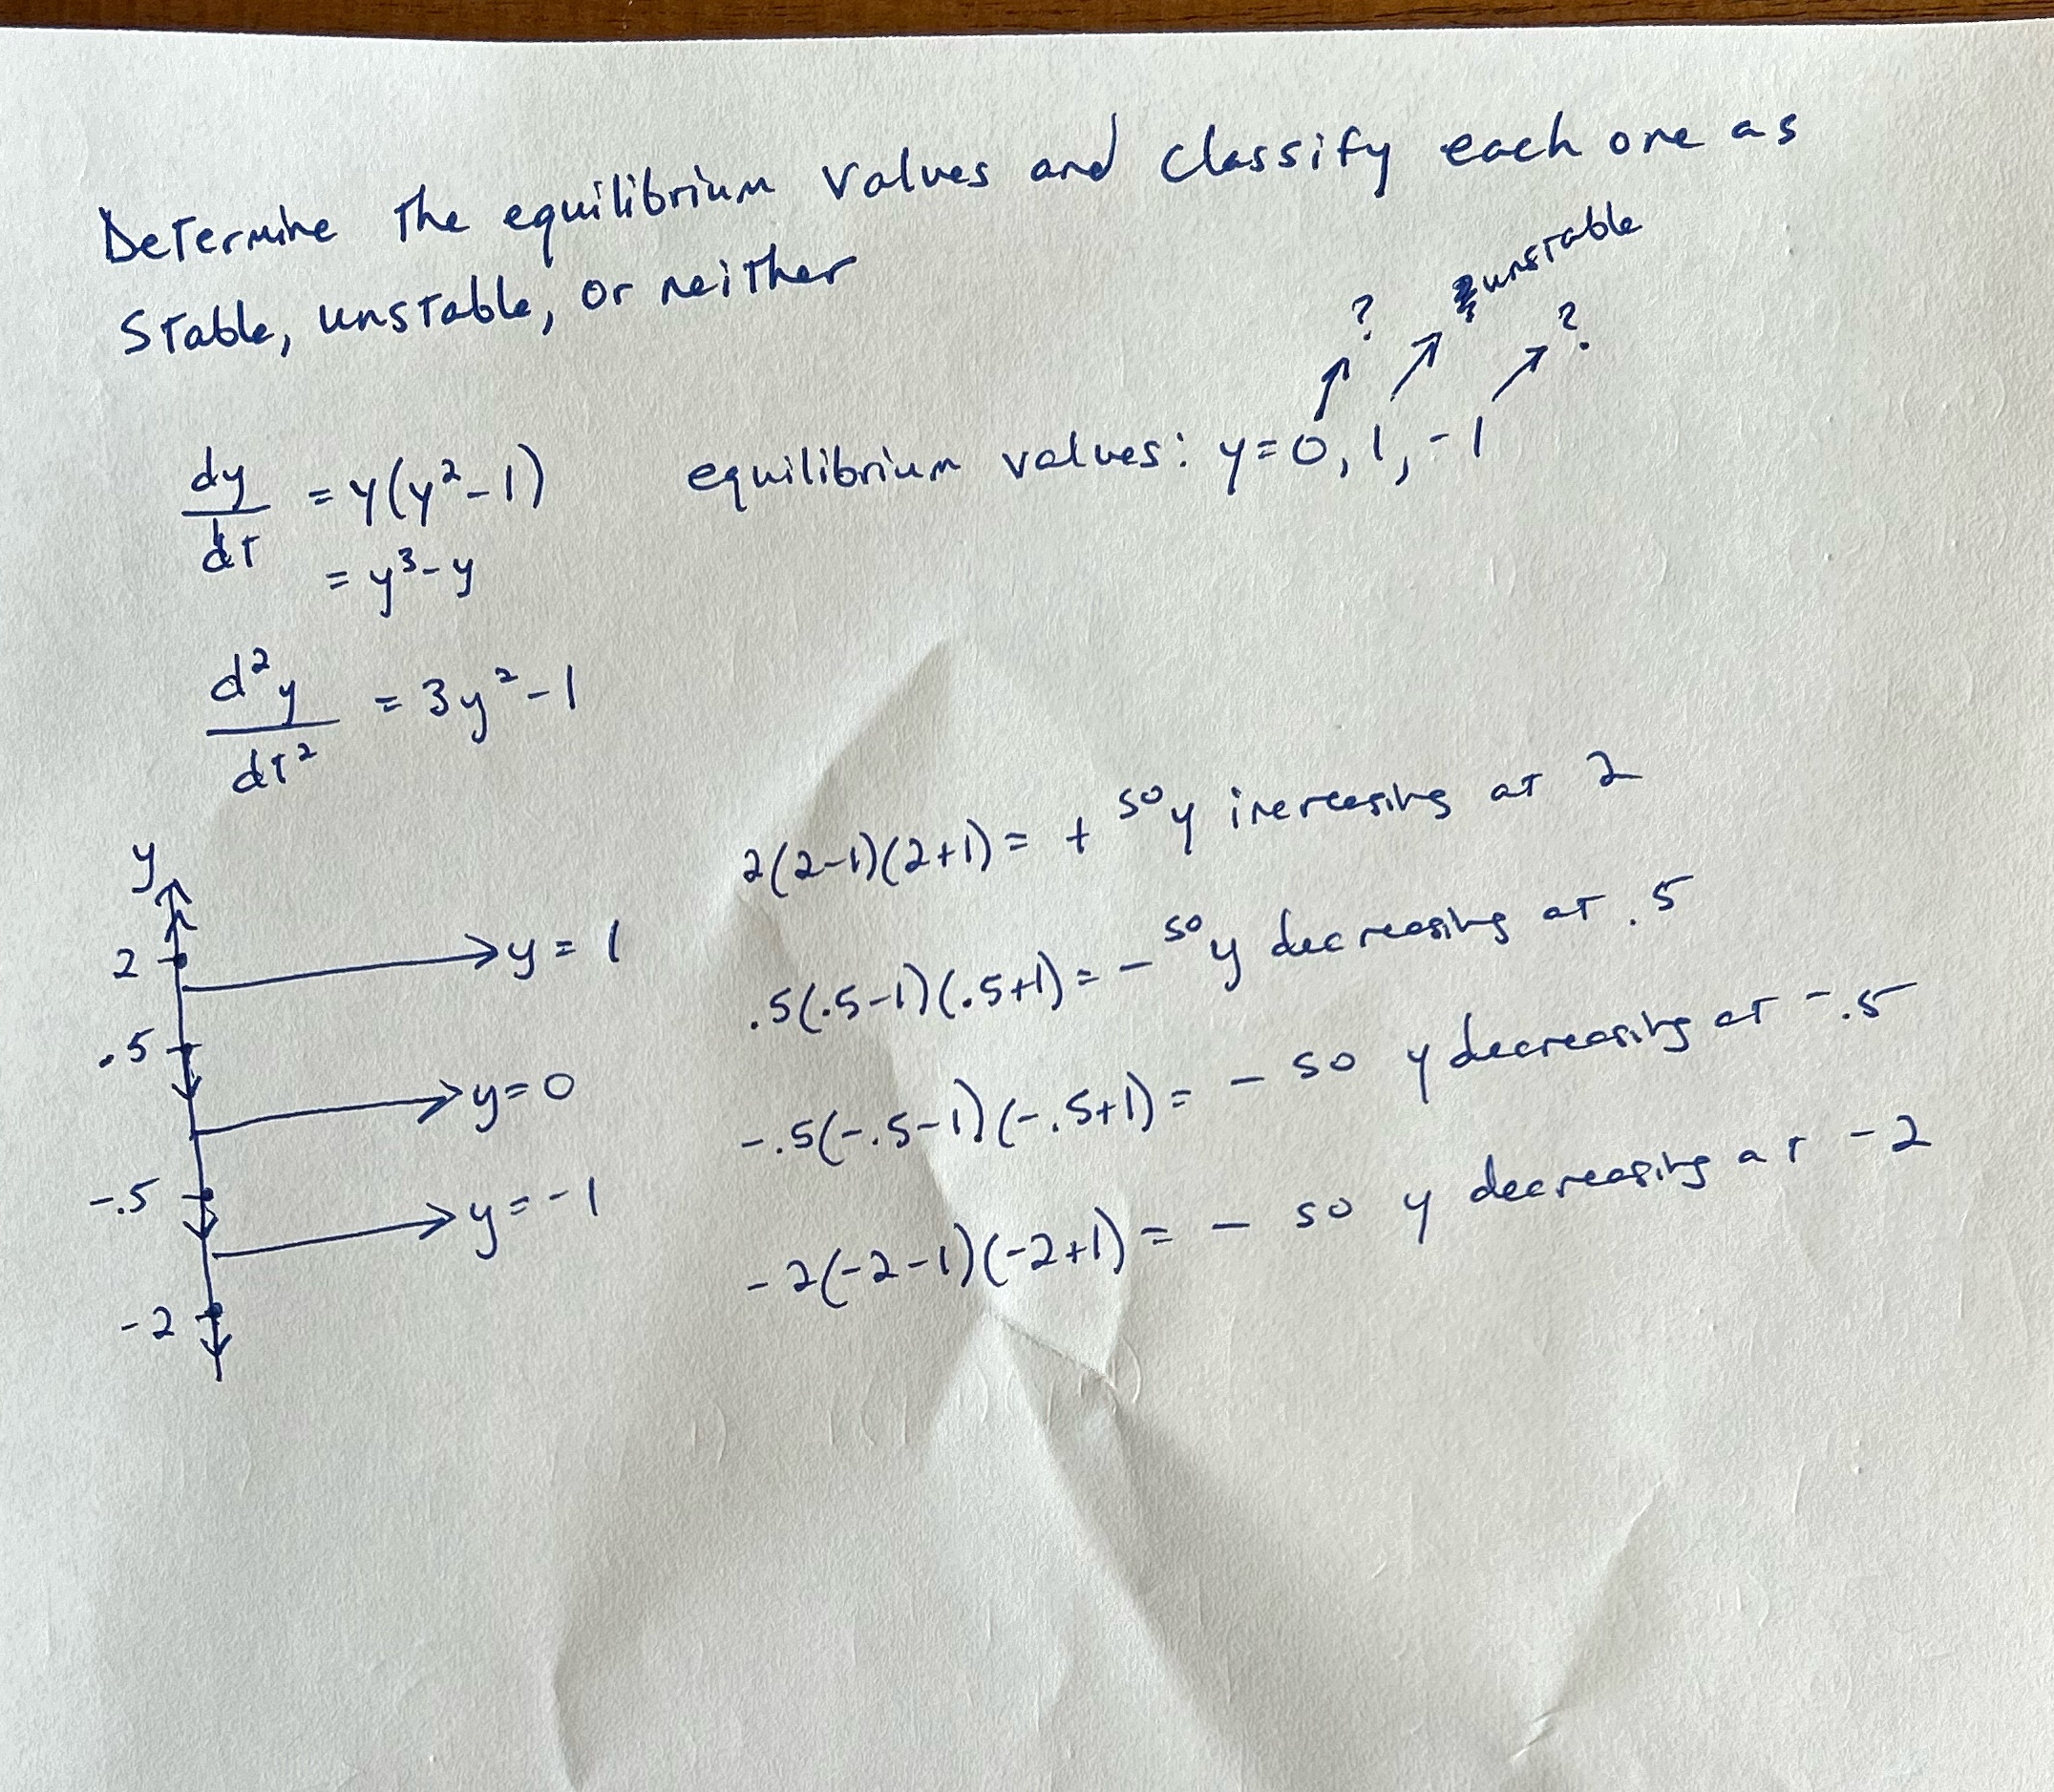 Determine the equilibrium values and classify each one as
stable, unstable, or neither
? unstable ?
dy/dt = y(y²-1) equilibrium values: y=0, 1, -1
= y³-y
d²y/dt² = 3y²-1
y
2 y=1
.5
y=0
-.5
y=-1
-2
2(2-1)(2+1)= + so y increasing at 2
.5(.5-1)(.5+1)= - so y decreasing at .5
-.5(-.5-1)(-.5+1)= - so y decreasing at -.5
-2(-2-1)(-2+1)= - so y decreasing at -2